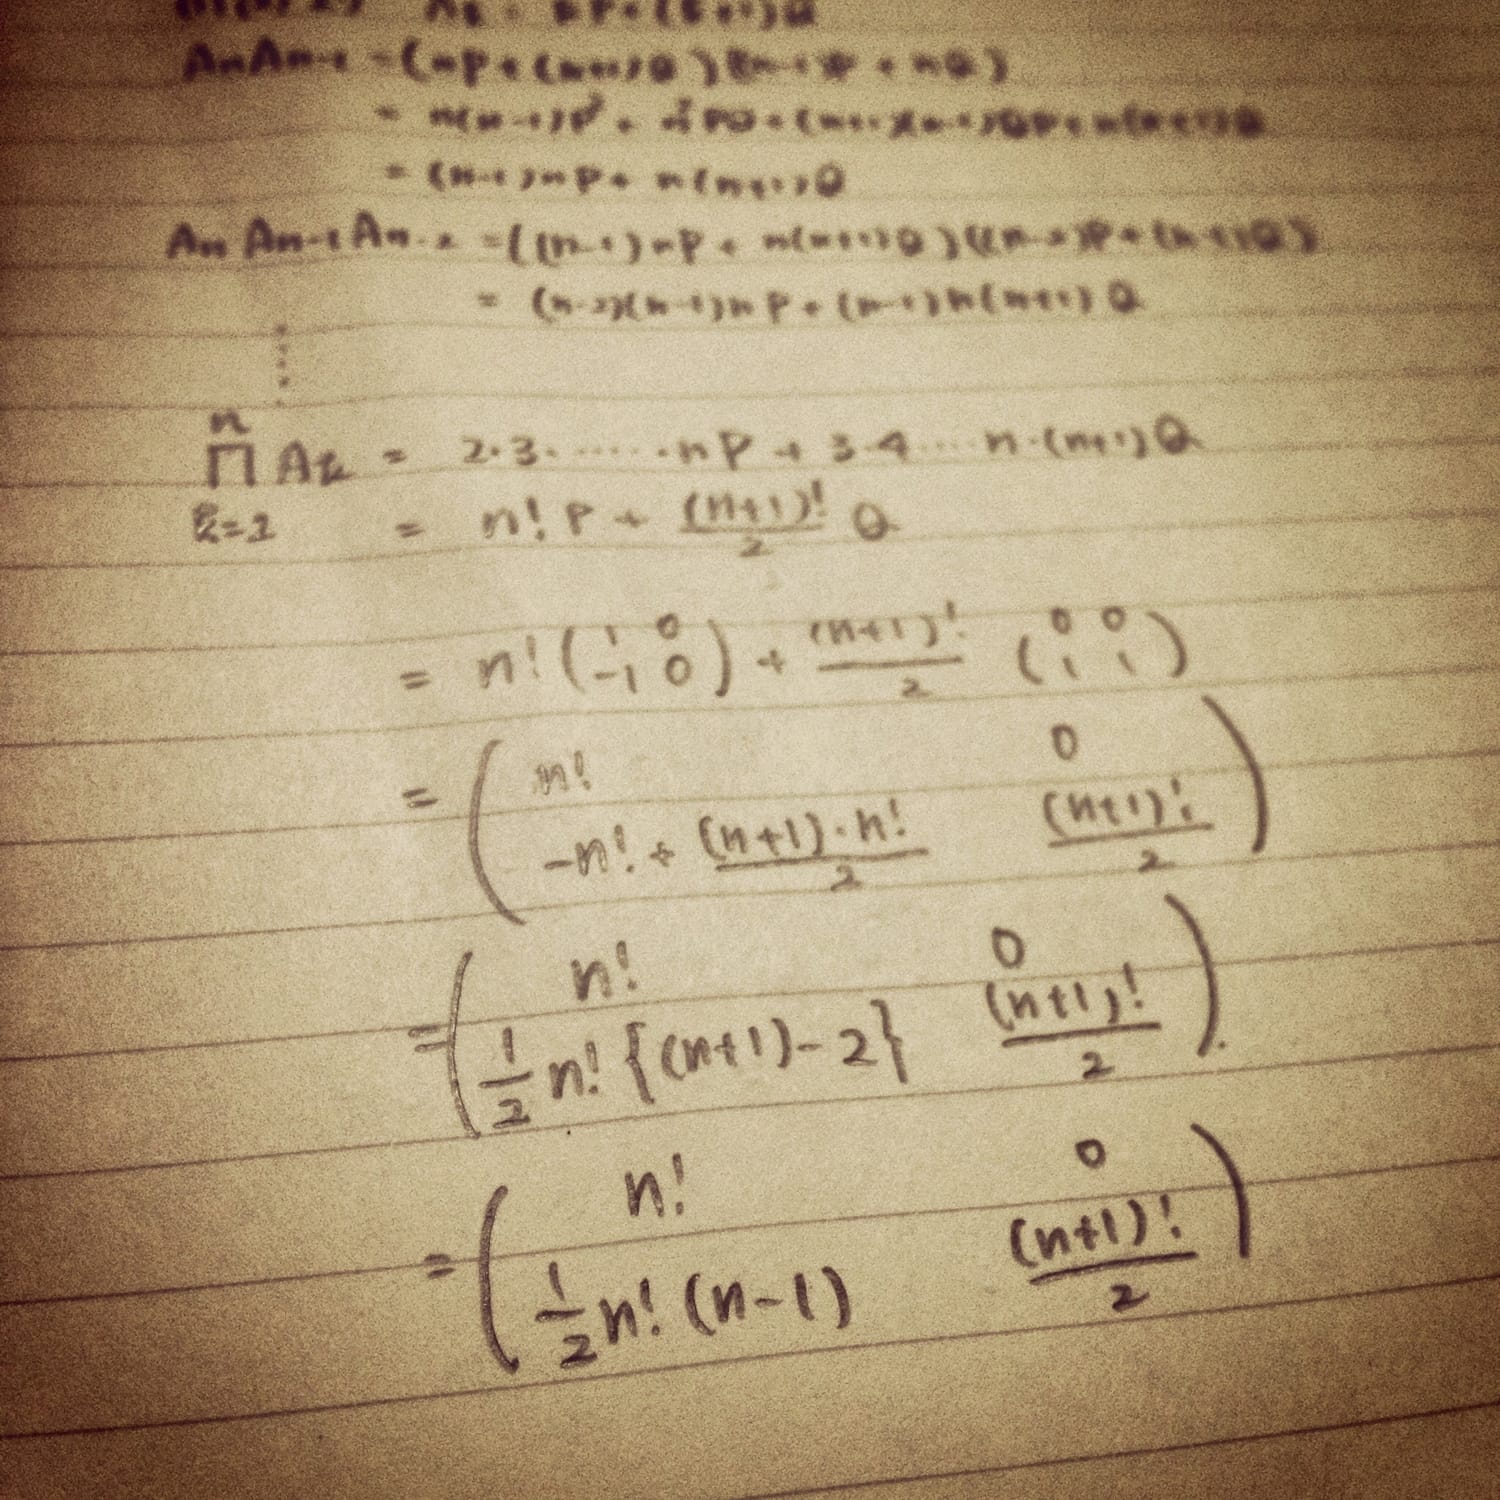 AnAn-1 = (nP+(n+1)Q)((n-1)P+nQ)
= n(n-1)P² + n²PQ+(n+1)(n-1)QP+n(n+1)Q
= (n-1)nP+ n(n+1)Q
AnAn-1An-2 = ((n-1)nP+ n(n+1)Q)((n-2)P+(n-1)Q)
= (n-2)(n-1)nP+(n-1)n(n+1)Q
⋮
n
Π Ak = 2·3·……·nP + 3·4……n·(n+1)Q
k=2 = n! P + (n+1)!/2 Q
= n! (1 0 -1 0) + (n+1)!/2 (0 0 1 1)
= ( n! 0
-n! + (n+1)·n!/2 (n+1)!/2 )
= ( n! 0
1/2 n! {(n+1)-2} (n+1)!/2 ).
= ( n! 0
1/2 n! (n-1) (n+1)!/2 )